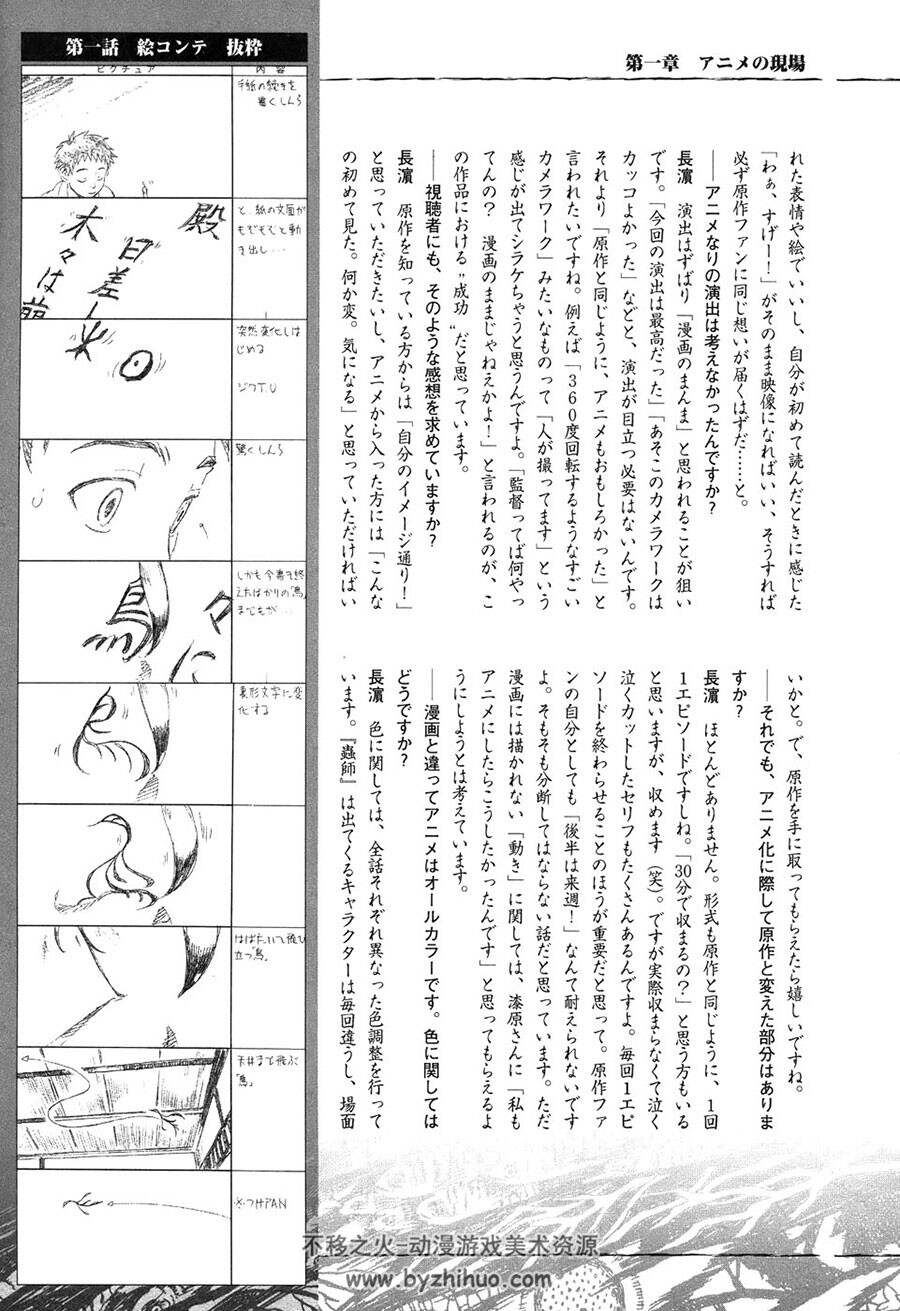 第一章　アニメの現場
れた表情や絵でいいし、自分が初めて読んだときに感じた
「わぁ、すげー！」がそのまま映像になればいい、そうすれば
必ず原作ファンに同じ想いが届くはずだ……と。
――アニメなりの演出は考えなかったんですか？
長濵　演出はずばり「漫画のまんま」と思われることが狙い
です。「今回の演出は最高だった」「あそこのカメラワークは
カッコよかった」などと、演出が目立つ必要はないんです。
それより「原作と同じように、アニメもおもしろかった」と
言われたいですね。例えば「360度回転するようなすごい
カメラワーク」みたいなものって「人が撮ってます」という
感じが出てシラケちゃうと思うんですよ。「監督ってば何やっ
てんの？　漫画のままじゃねえかよ！」と言われるのが、こ
の作品における〝成功〟だと思っています。
――視聴者にも、そのような感想を求めていますか？
長濵　原作を知っている方からは「自分のイメージ通り！」
と思っていただきたいし、アニメから入った方には「こんな
の初めて見た。何か変。気になる」と思っていただければい
いかと。で、原作を手に取ってもらえたら嬉しいですね。
――それでも、アニメ化に際して原作と変えた部分はありま
すか？
長濵　ほとんどありません。形式も原作と同じように、1回
1エピソードですしね。「30分で収まるの？」と思う方もいる
と思いますが、収めます（笑）。ですが実際収まらなくて泣く
泣くカットしたセリフもたくさんあるんですよ。毎回1エピ
ソードを終わらせることのほうが重要だと思って。原作ファ
ンの自分としても「後半は来週！」なんて耐えられないです
よ。そもそも分断してはならない話だと思っています。ただ
漫画には描かれない「動き」に関しては、漆原さんに「私も
アニメにしたらこうしたかったんです」と思ってもらえるよ
うにしようとは考えています。
――漫画と違ってアニメはオールカラーです。色に関しては
どうですか？
長濵　色に関しては、全話それぞれ異なった色調整を行って
います。『蟲師』は出てくるキャラクターは毎回違うし、場面
第一話　絵コンテ　抜粋
ピクチュア　内容
手紙の続きを
書くしんら
殿
日差し
木々は
と、紙の文面が
もぞもぞと動
き出し…
突然変化しは
じめる
驚くしんら
しかも今書き終
えたばかりの「鳥」
までもが…
々に
鳥
異形文字に変
化する
はばたいて飛び
立つ「鳥」
天井まで飛ぶ
「鳥」
PAN
不移之火-动漫游戏美术资源
www.byzhihuo.com